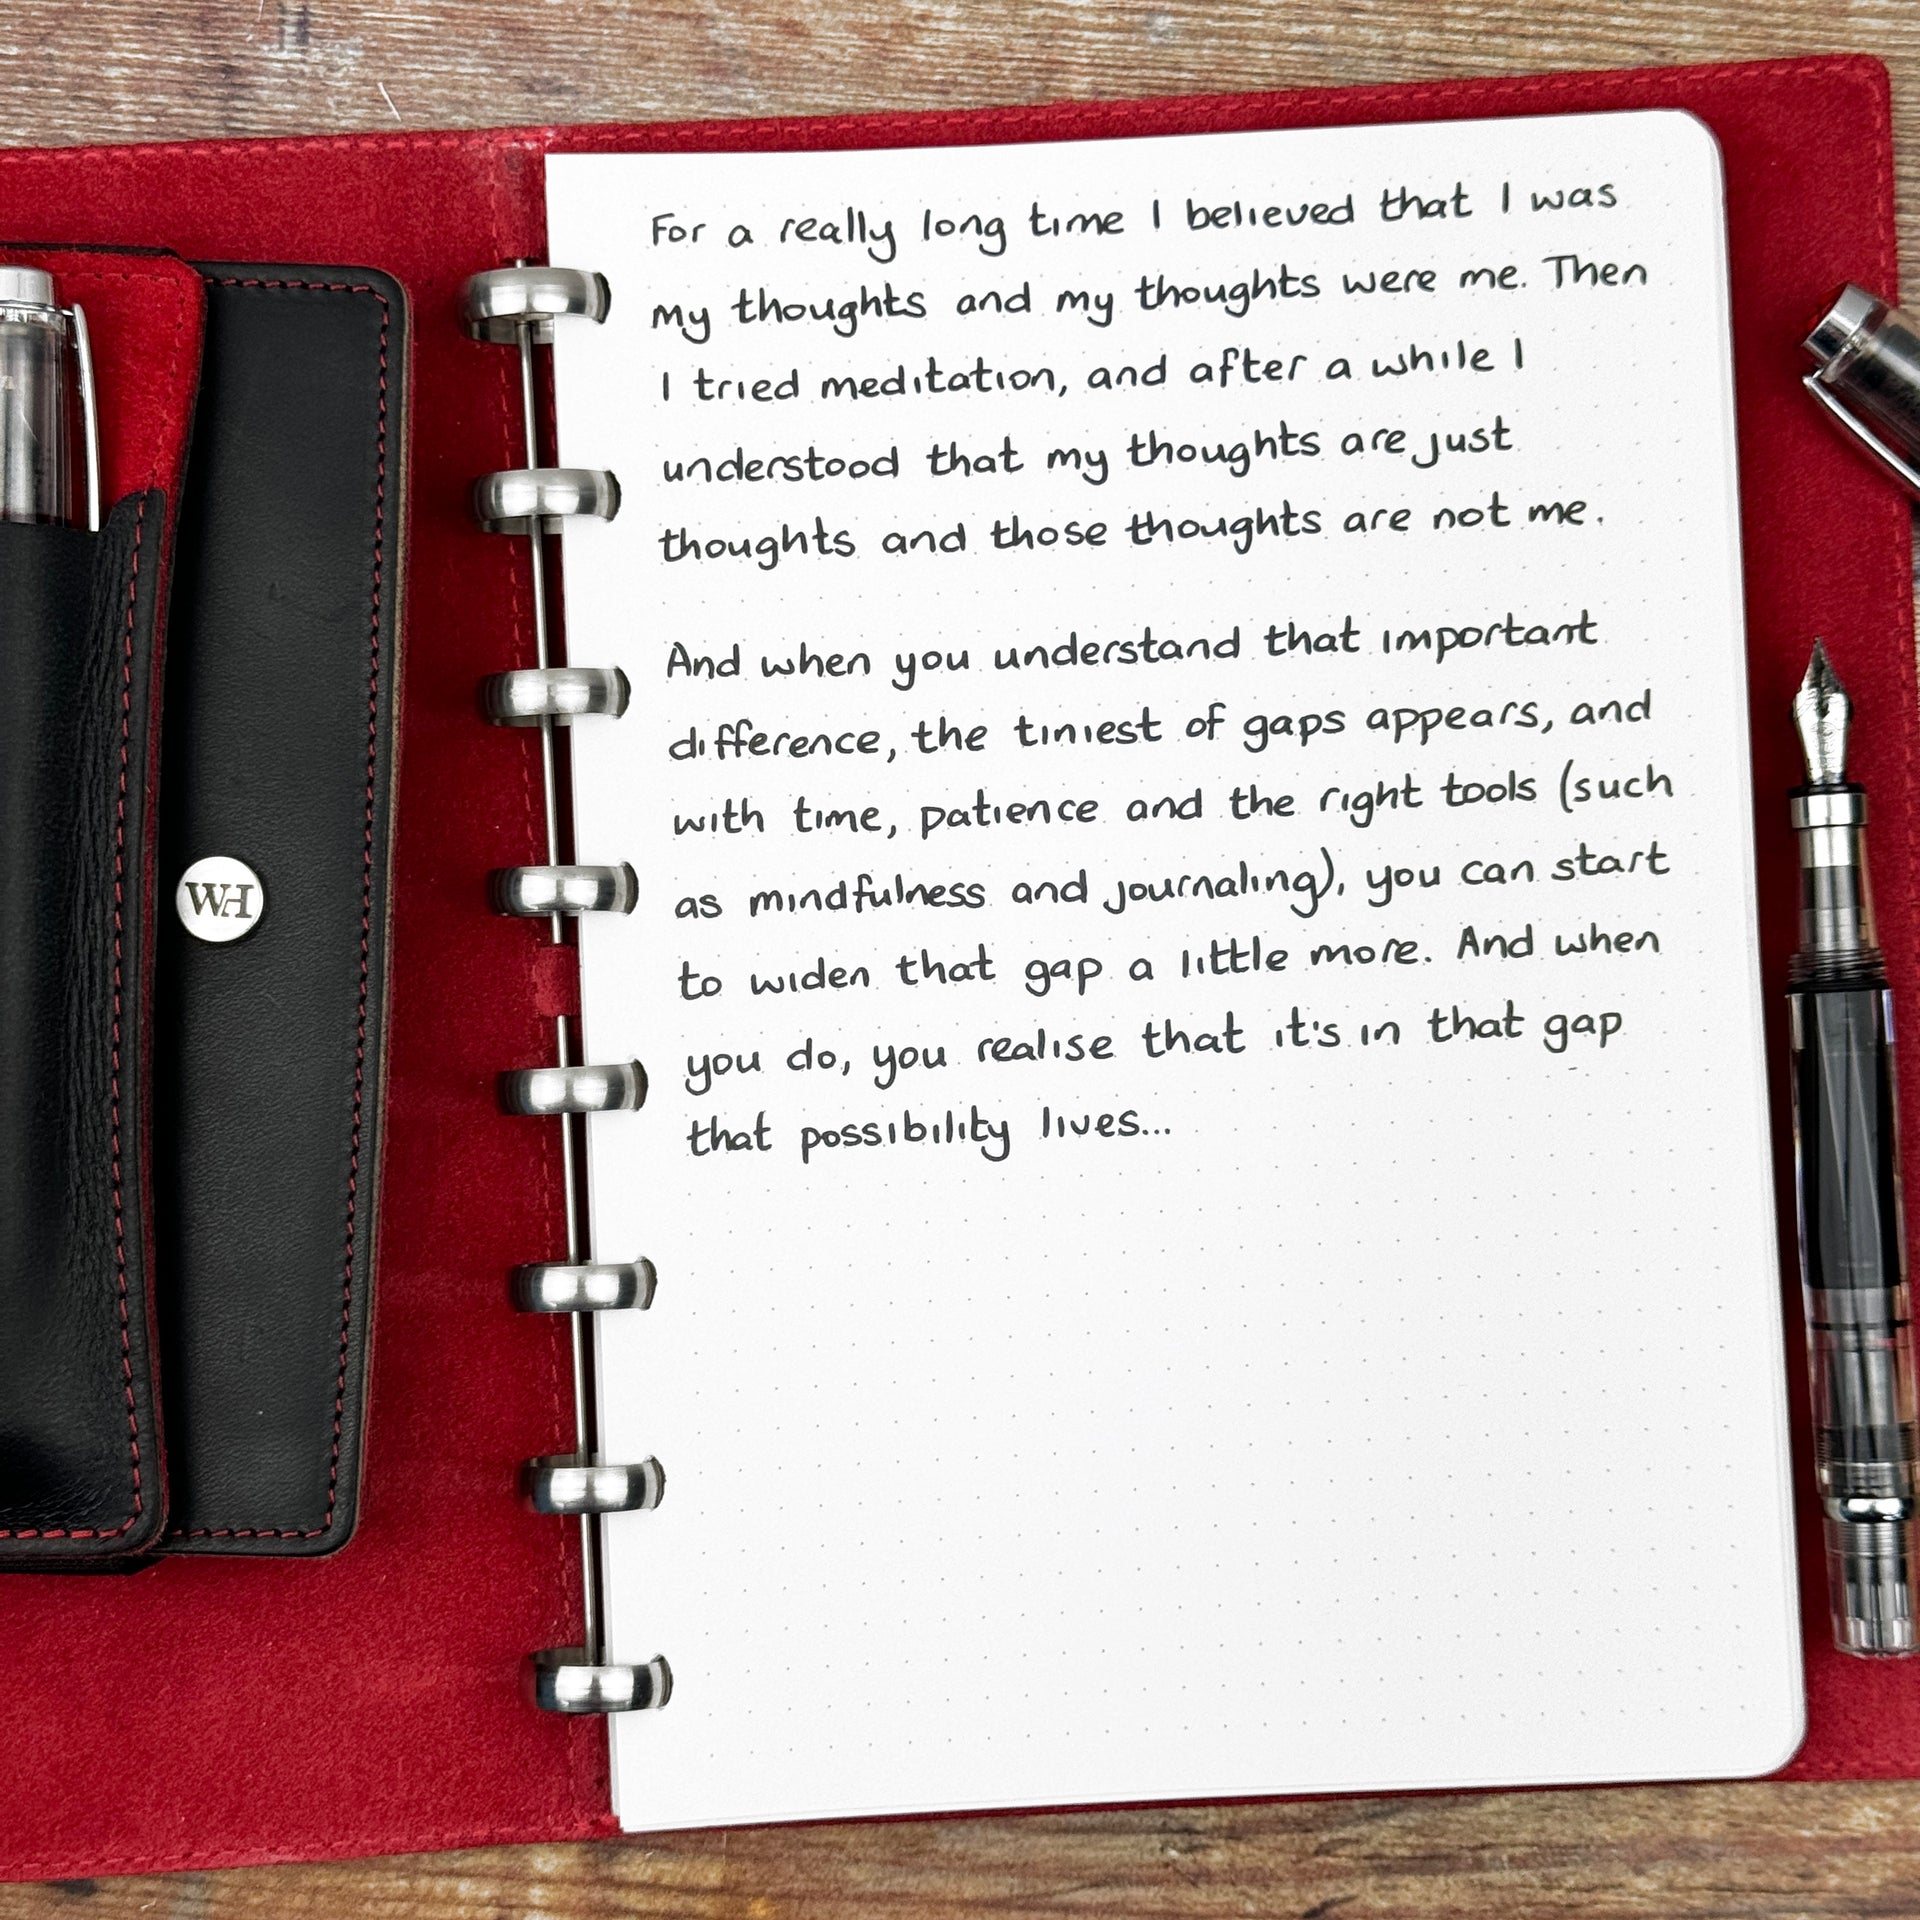 For a really long time I believed that I was
my thoughts and my thoughts were me. Then
I tried meditation, and after a while I
understood that my thoughts are just
thoughts and those thoughts are not me.
And when you understand that important
difference, the tiniest of gaps appears, and
with time, patience and the right tools (such
as mindfulness and journaling), you can start
to widen that gap a little more. And when
you do, you realise that it's in that gap
that possibility lives...
WH